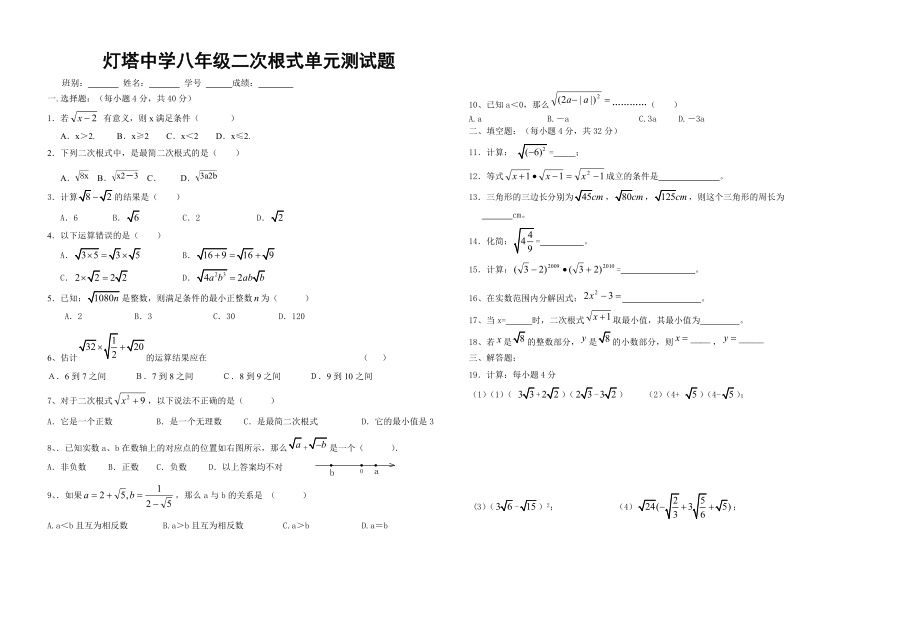 灯塔中学八年级二次根式单元测试题
班别:______ 姓名:______ 学号 _____成绩:_______
一.选择题:(每小题4分,共40分)
1.若√(x-2) 有意义,则x满足条件( )
A.x>2. B.x≥2 C.x<2 D.x≤2.
2.下列二次根式中,是最简二次根式的是( )
A.√8x B.√x2-3 C. D.√3a2b
3.计算√8-√2的结果是( )
A.6 B.√6 C.2 D.√2
4.以下运算错误的是( )
A.√(3×5)=√3×√5 B.√(16+9)=√16+√9
C.2×√2=2√2 D.√(4a²b³)=2ab√b
5.已知:√1080n是整数,则满足条件的最小正整数n为( )
A.2 B.3 C.30 D.120
6、估计√32×√(1/2)+√20的运算结果应在 ( )
A.6到7之间 B.7到8之间 C.8到9之间 D.9到10之间
7、对于二次根式√(x²+9),以下说法不正确的是( )
A.它是一个正数 B.是一个无理数 C.是最简二次根式 D.它的最小值是3
8、.已知实数a、b在数轴上的对应点的位置如右图所示,那么√a+√-b是一个( ).
A.非负数 B.正数 C.负数 D.以上答案均不对
b 0 a
9、.如果a=2+√5,b=1/(2-√5),那么a与b的关系是 ( )
A.a<b且互为相反数 B.a>b且互为相反数 C.a>b D.a=b
10、已知a<0,那么√(2a-|a|)²=…………( )
A.a B.-a C.3a D.-3a
二、填空题:(每小题4分,共32分)
11.计算: √(-6)²=____;
12、等式√(x+1)•√(x-1)=√(x²-1)成立的条件是_____________。
13.三角形的三边长分别为√45cm,√80cm,√125cm,则这个三角形的周长为
______cm。
14.化简:√(4 4/9)=_________。
15.计算:(√3-2)²⁰⁰⁹•(√3+2)²⁰¹⁰=_______________。
16、在实数范围内分解因式:2x²-3=________________。
17、当x=_____时,二次根式√(x+1)取最小值,其最小值为________。
18、若x是√8的整数部分,y是√8的小数部分,则x=____,y=_____
三、解答题:
19.计算:每小题4分
(1)(1)( 3√3+2√2)(2√3-3√2) (2)(4+ √5)(4-√5);
(3)(3√6-√15)²; (4)√24(-√(2/3)+3√(5/6)+√5);